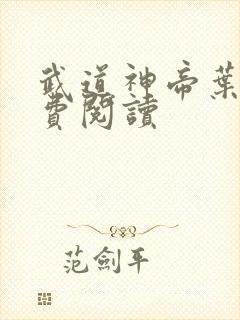 武道神帝葉
費閱讀
范劍平